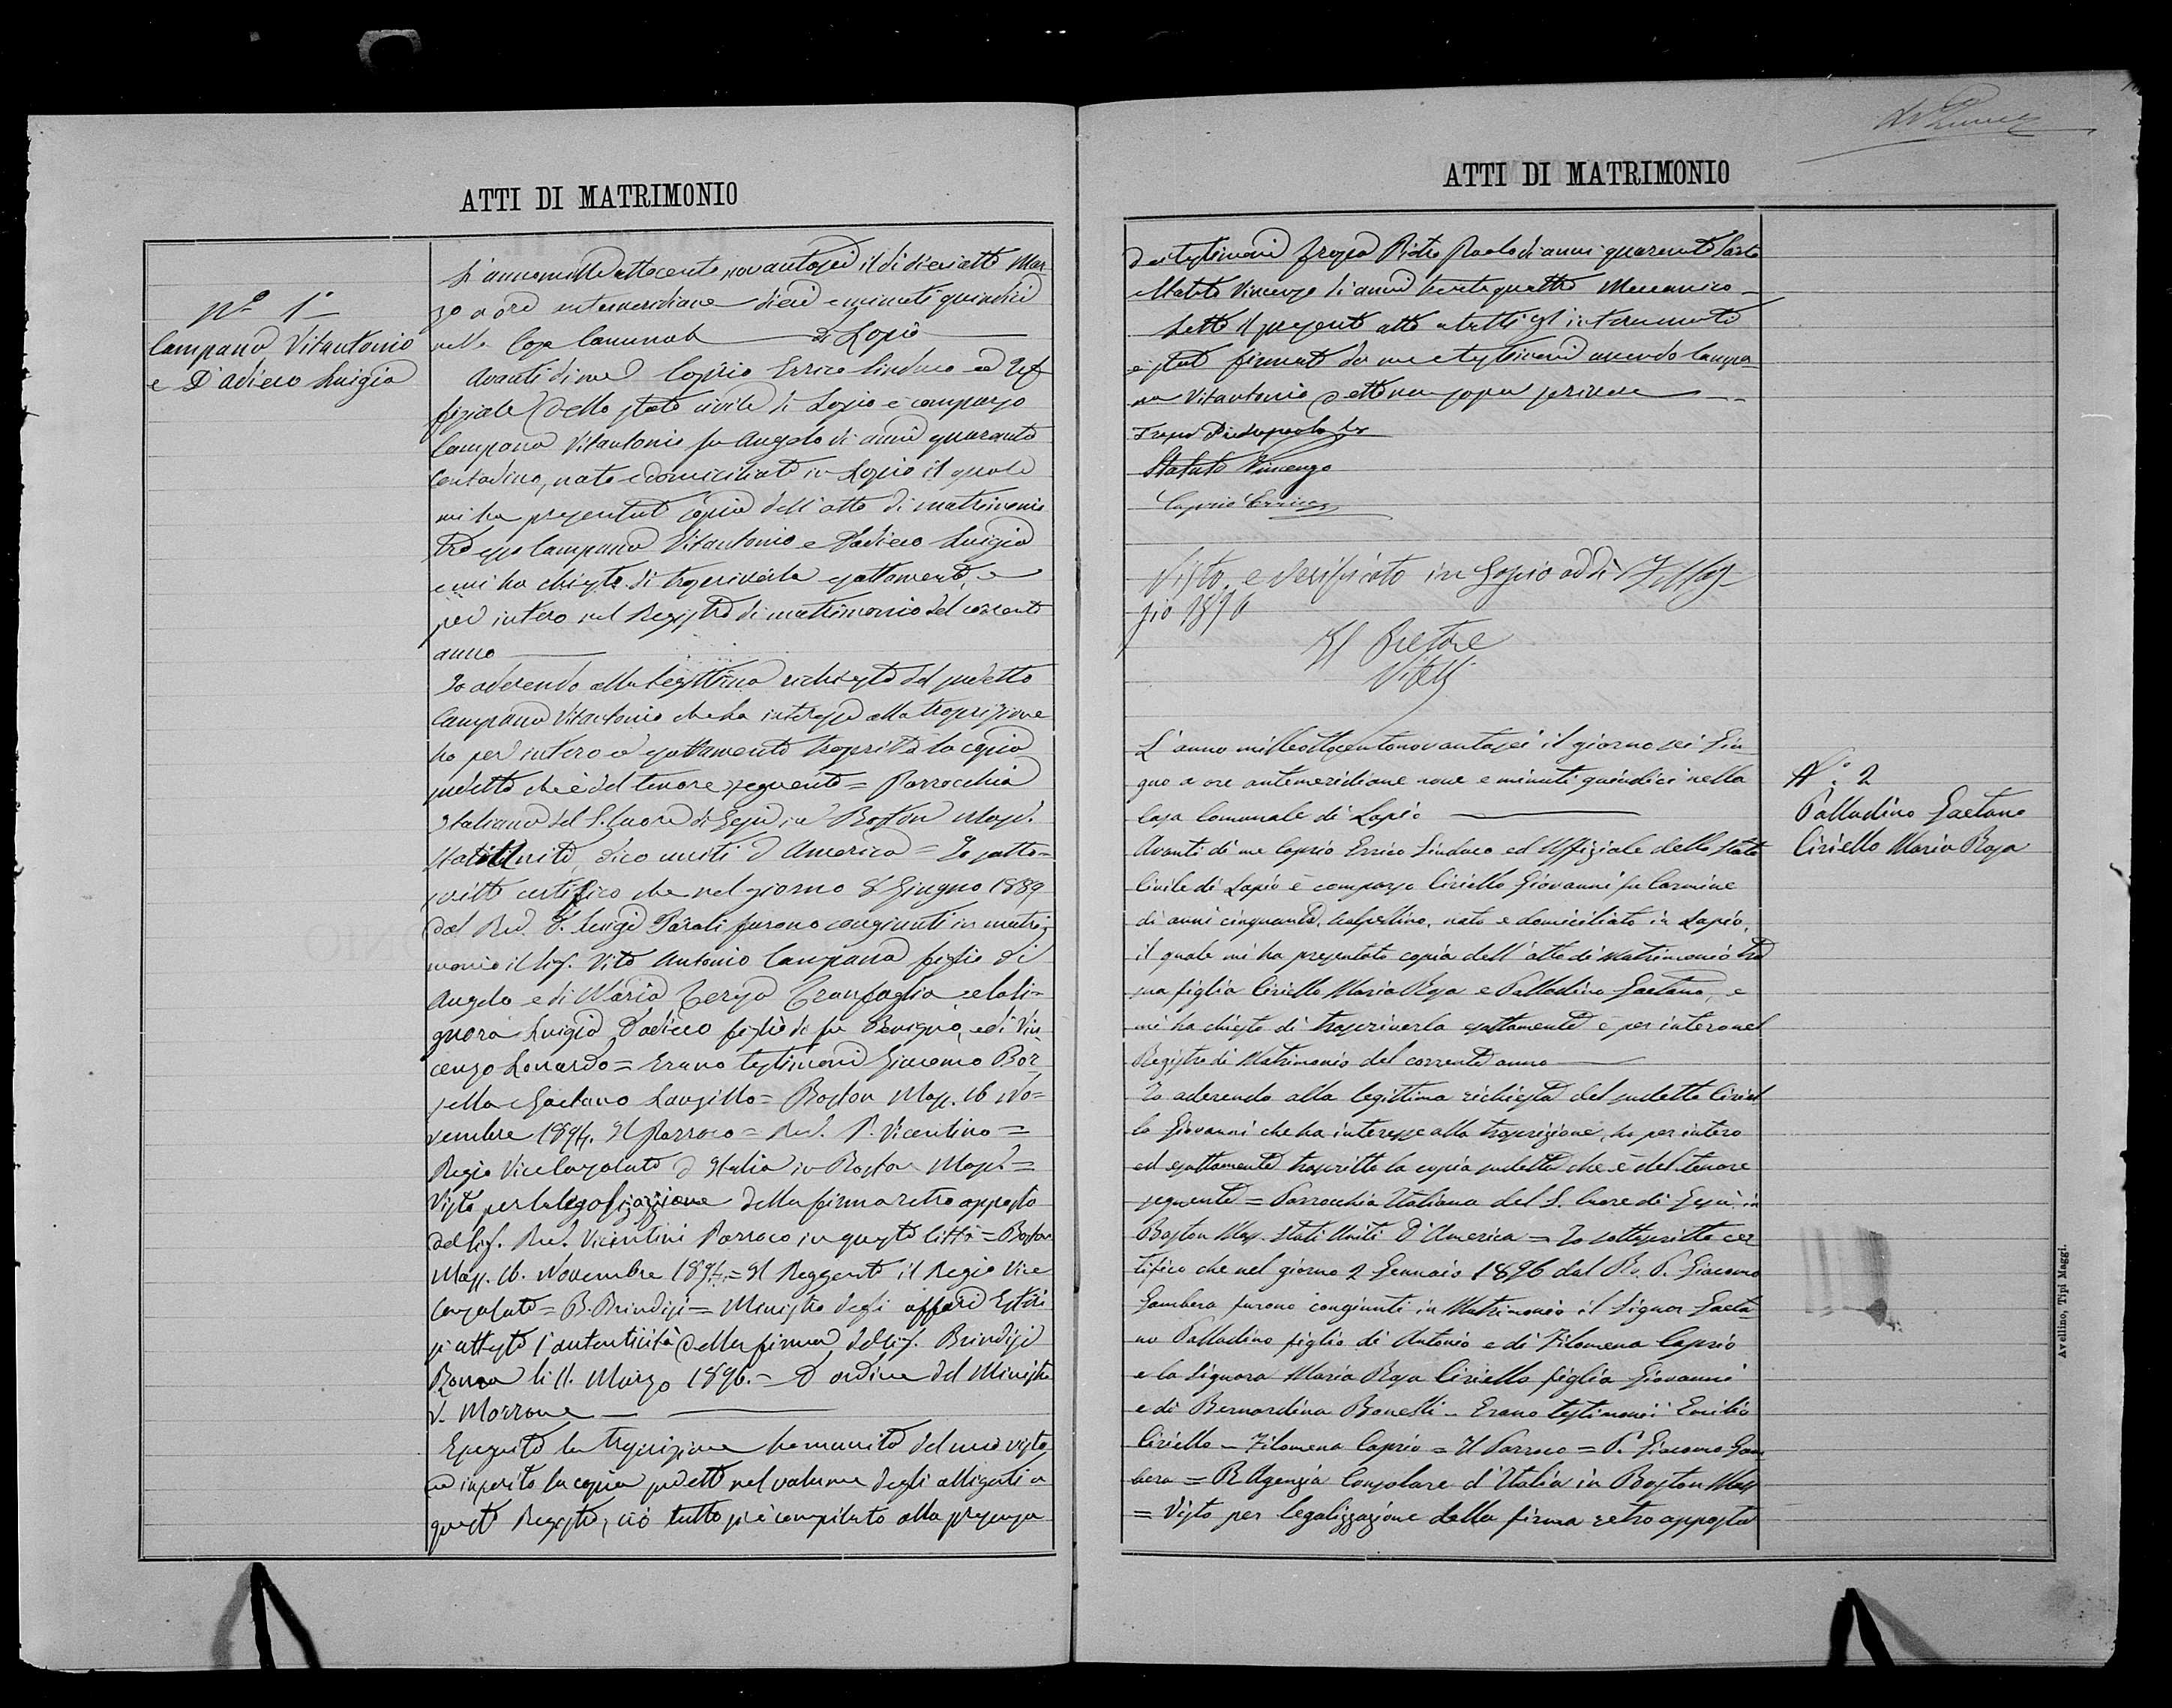 ATTI DI MATRIMONIO
Nº 1º
Campana Vitantonio
e D'adieco Luigia
L'anno mille ottocento novantasei il dì dieciotto Mar
zo a ore antemeridiane dieci e minuti quindici
nella Casa Comunale di Lapio
Avanti di me Caprio Errico Sindaco ed Uf
fiziale dello stato civile di Lapio è comparso
Campana Vitantonio fu Angelo di anni quaranta
Contadino, nato e domiciliato in Lapio il quale
mi ha presentato copia dell'atto di matrimonio
tra esso Campana Vitantonio e Dadieco Luigia
e mi ha chiesto di trascriverla esattamente, e
per intero nel Registro di matrimonio del corrente
anno
Io aderendo alla legittima richiesta del sudetto
Campana Vitantonio che ha interesse alla trascrizione
ho per intero e esattamente trascritta la copia
sudetta che è del tenore seguente = Parrocchia
Italiana del S. Cuore di Gesù in Boston Mass.
Stati Uniti, dico uniti d'America = Io sotto=
scritto certifico che nel giorno 8 Giugno 1889
dal Rev. P. Luigi Paroli furono congiunti in matri=
monio il Sig. Vito Antonio Campana figlio di
Angelo e di Maria Teresa Tranfaglia e la Si=
gnora Luigia Dadieco figlia di fu Benigno, e di Vin
cenza Lonardo = Erano testimoni Giacomo Bor
sella e Gaetano Langillo = Boston Mass. 16 No=
vembre 1894. Il Parroco = Rev. P. Vicentino =
Regio Vice Consolato d'Italia in Boston Mass. =
Visto per la legalizzazione della firma retro apposta
del Sig. Rev. Vicentini Parroco in questa città = Boston
Mass. 16. Novembre 1894. = Il Reggente il Regio Vice
Consolato = B. Brindisi = Ministro degli affari Esteri
si attesta l'autenticità della firma del Sig. Brindisi
Roma li 11. Marzo 1896. = D'ordine del Ministro
V. Morrone
Eseguita la trascrizione ho munito del mio visto
ed inserito la copia sudetta nel volume degli alligati a
questo Registro, ciò tutto si è compilato alla presenza
ATTI DI MATRIMONIO
dei testimoni Pietro Paolo di anni quaranta Sarto
Vincenzo di anni trentaquattro Meccanico
Letto il presente atto a tutti gl'intervenuti
è stato firmato da me e testimoni avendo Campa
na Vitantonio detto non saper scrivere
Vincenzo
Caprio Errico
Visto e verificato in Lapio addì Mag
gio 1896
Il Pretore
Vitelli
L'anno milleottocentonovantasei il giorno sei Giu
gno a ore antemeridiane nove e minuti quindici nella
Casa Comunale di Lapio
Avanti di me Caprio Errico Sindaco ed Uffiziale dello Stato
Civile di Lapio è comparso Ciriello Giovanni fu Carmine
di anni cinquanta, nato e domiciliato in Lapio,
il quale mi ha presentato copia dell'atto di Matrimonio tra
sua figlia Ciriello Maria Rosa e Palladino Gaetano, e
mi ha chiesto di trascriverla esattamente e per intero nel
Registro di Matrimonio del corrente anno
Io aderendo alla legittima richiesta del sudetto Ciriel
lo Giovanni che ha interesse alla trascrizione, ho per intero
ed esattamente trascritta la copia sudetta che è del tenore
seguente = Parrocchia Italiana del S. Cuore di Gesù in
Boston Mass. Stati Uniti D'America = Io sottoscritto cer
tifico che nel giorno 2 Gennaio 1896 dal Rv. P. Giacomo
Gambera furono congiunti in Matrimonio il Signor Gaeta
no Palladino figlio di Antonio e di Filomena Caprio
e la Signora Maria Rosa Ciriello figlia Giovanni
e di Bernardina Bonelli = Erano testimoni Emilio
Ciriello = Filomena Caprio = Il Parroco = P. Giacomo Gam
bera = R. Agenzia Consolare d'Italia in Boston Mass
= Visto per legalizzazione della firma retro apposta
Nº 2
Palladino Gaetano
Ciriello Maria Rosa
Avellino, Tipi Maggi.